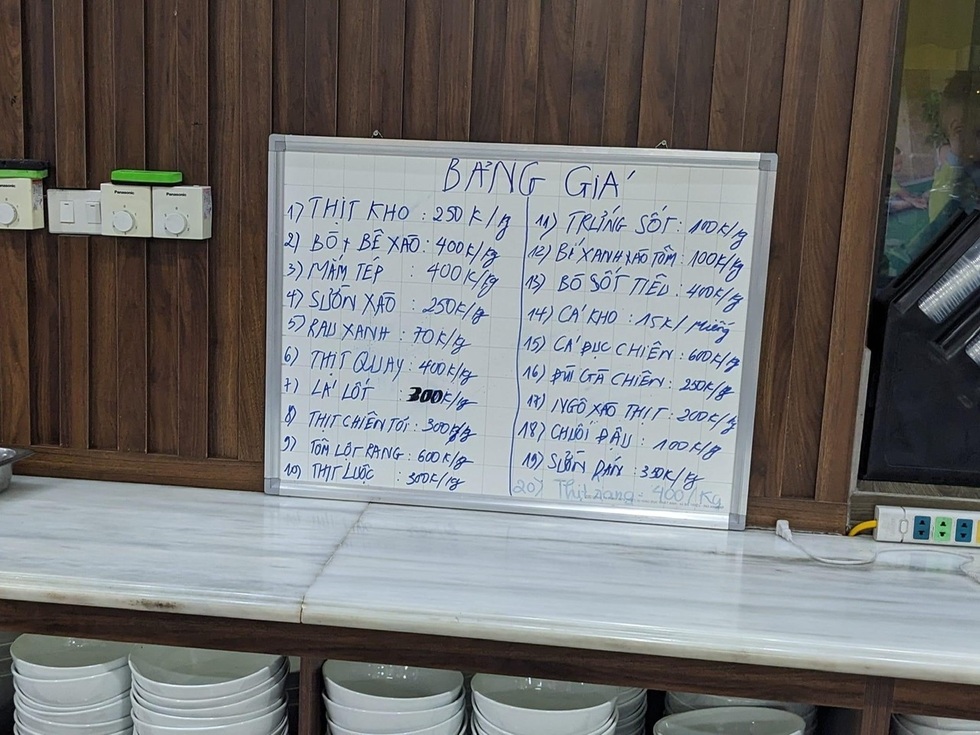 BẢNG GIÁ
1) THỊT KHO : 250K/kg
2) BÒ + BÊ XÀO : 400K/kg
3) MẮM TÉP : 400K/kg
4) SƯỜN XÀO : 250K/kg
5) RAU XANH : 70K/kg
6) THỊT QUAY : 400K/kg
7) LÁ LỐT : 300K/kg
8) THỊT CHIÊN TỎI : 300K/kg
9) TÔM LỘT RANG : 600K/kg
10) THỊT LUỘC : 300K/kg
11) TRỨNG SỐT : 100K/kg
12) BÍ XANH XÀO TÔM : 100K/kg
13) BÒ SỐT TIÊU : 400K/kg
14) CÁ KHO : 15K/ miếng
15) CÁ ĐỤC CHIÊN : 600K/kg
16) ĐÙI GÀ CHIÊN : 250K/kg
17) NGÔ XÀO THỊT : 200K/kg
18) CHUỐI ĐẬU : 100K/kg
19) SƯỜN RÁN : 350K/kg
20) Thịt rang : 400/Kg
Panasonic
Panasonic